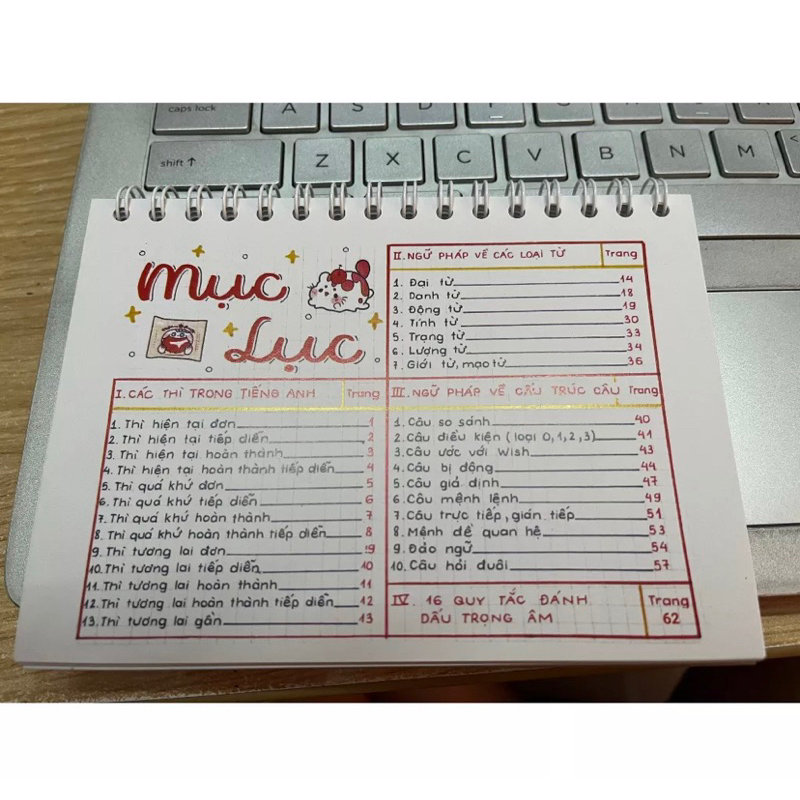 caps lock
A
S
D
shift ↑
Z
X
C
V
B
N
M
Mục
Lục
I. CÁC THÌ TRONG TIẾNG ANH Trang
1. Thì hiện tại đơn 1
2. Thì hiện tại tiếp diễn 2
3. Thì hiện tại hoàn thành 3
4. Thì hiện tại hoàn thành tiếp diễn 4
5. Thì quá khứ đơn 5
6. Thì quá khứ tiếp diễn 6
7. Thì quá khứ hoàn thành 7
8. Thì quá khứ hoàn thành tiếp diễn 8
9. Thì tương lai đơn 9
10. Thì tương lai tiếp diễn 10
11. Thì tương lai hoàn thành 11
12. Thì tương lai hoàn thành tiếp diễn 12
13. Thì tương lai gần 13
II. NGỮ PHÁP VỀ CÁC LOẠI TỪ Trang
1. Đại từ 14
2. Danh từ 18
3. Động từ 19
4. Tính từ 30
5. Trạng từ 33
6. Lượng từ 34
7. Giới từ, mạo từ 36
III. NGỮ PHÁP VỀ CẤU TRÚC CÂU Trang
1. Câu so sánh 40
2. Câu điều kiện (loại 0,1,2,3) 41
3. Câu ước với Wish 43
4. Câu bị động 44
5. Câu giả định 47
6. Câu mệnh lệnh 49
7. Câu trực tiếp, gián tiếp 51
8. Mệnh đề quan hệ 53
9. Đảo ngữ 54
10. Câu hỏi đuôi 57
IV. 16 QUY TẮC ĐÁNH Trang
DẤU TRỌNG ÂM 62